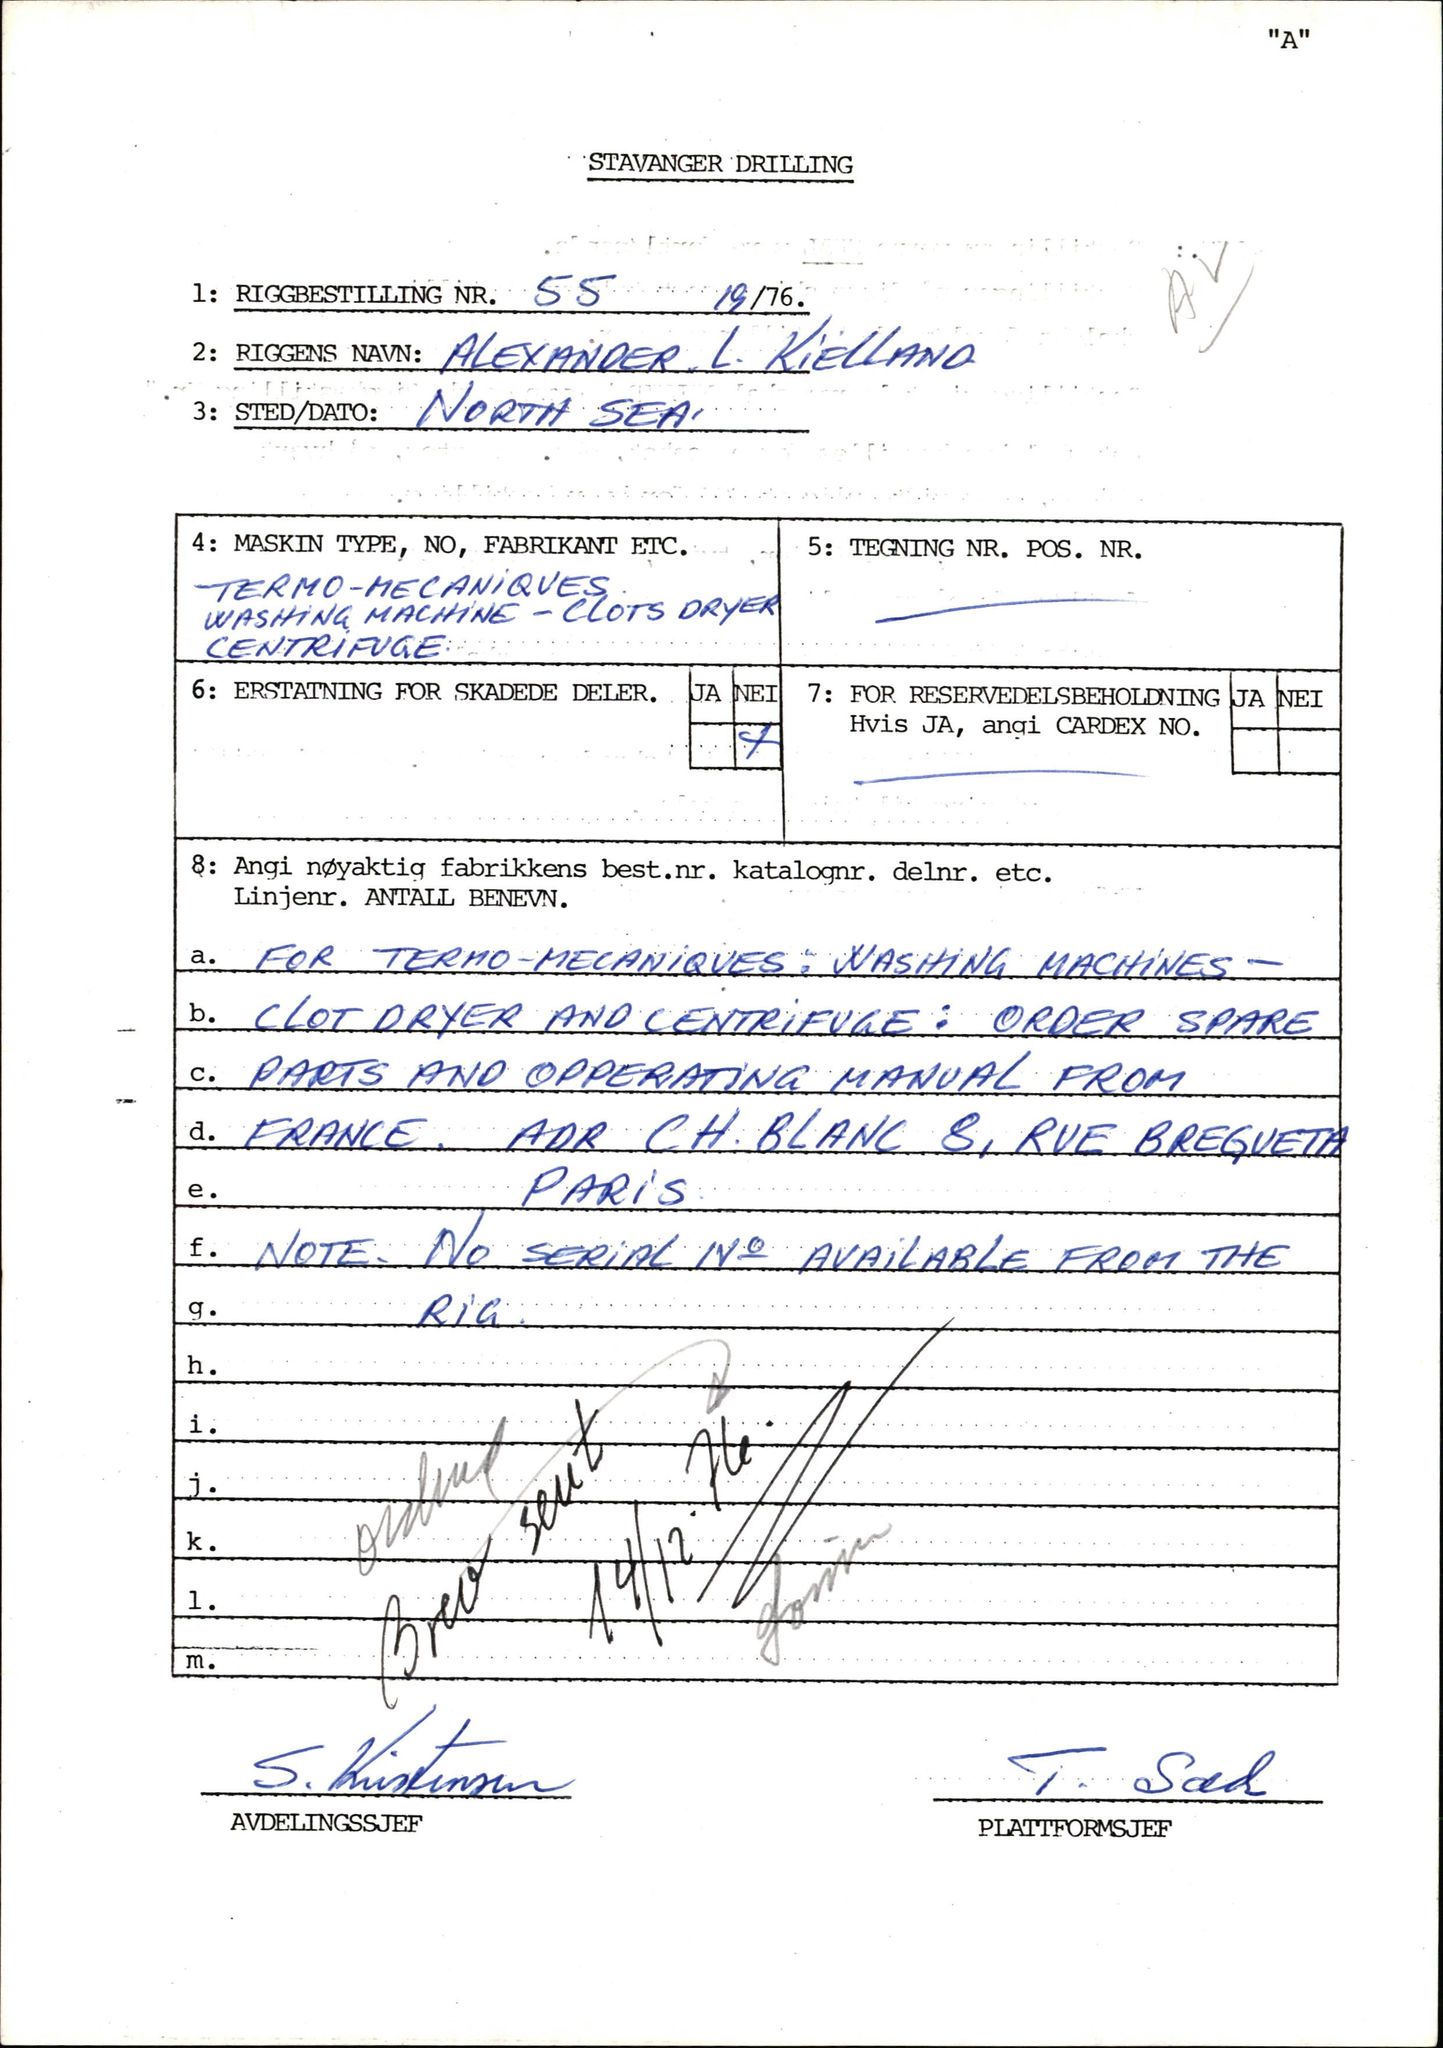 "A"
STAVANGER DRILLING
1: RIGGBESTILLING NR. 55 19/76.
2: RIGGENS NAVN: ALEXANDER L. KIELLAND
3: STED/DATO: NORTH SEA.
4: MASKIN TYPE, NO, FABRIKANT ETC.
TERMO-MECANIQUES
WASHING MACHINE - CLOTS DRYER
CENTRIFUGE
5: TEGNING NR. POS. NR.
6: ERSTATNING FOR SKADEDE DELER. JA NEI
x
7: FOR RESERVEDELSBEHOLDNING JA NEI
Hvis JA, angi CARDEX NO.
8: Angi nøyaktig fabrikkens best.nr. katalognr. delnr. etc.
Linjenr. ANTALL BENEVN.
a. FOR TERMO-MECANIQUES: WASHING MACHINES -
b. CLOT DRYER AND CENTRIFUGE: ORDER SPARE
c. PARTS AND OPPERATING MANUAL FROM
d. FRANCE. ADR CH. BLANC 8, RUE BREGUETA
e. PARIS
f. NOTE. NO SERIAL Nº AVAILABLE FROM THE
g. RIG.
h.
i.
j.
k.
l.
m.
Brev sent
14/12.76.
S. Kristensen
AVDELINGSSJEF
T. Sæd
PLATTFORMSJEF